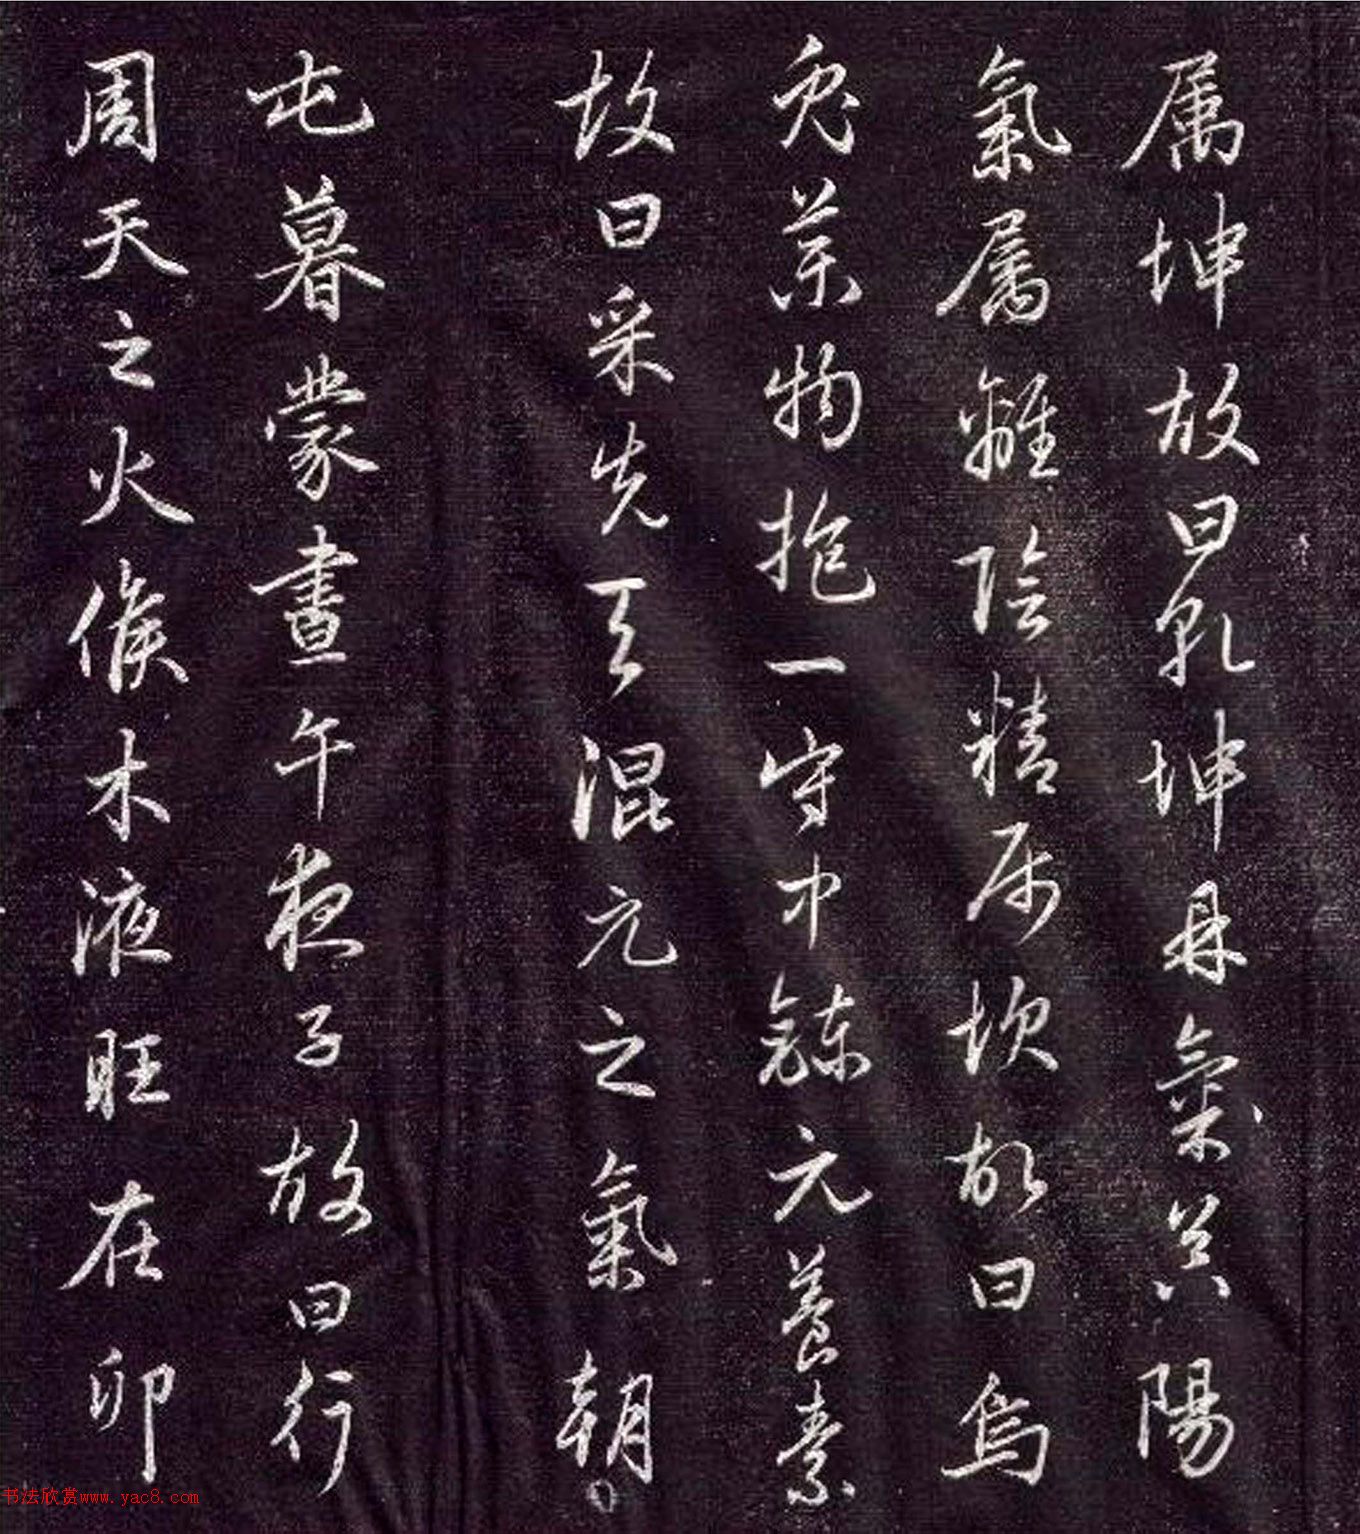 属坤故曰乾坤鼎器其陽
氣属離陰精属坎故曰烏
兔藥物抱一守中鍊元養素
故曰采先天混元之氣朝
屯暮蒙晝午夜子故曰行
周天之火候木液旺在卯
书法欣赏www.yac8.com